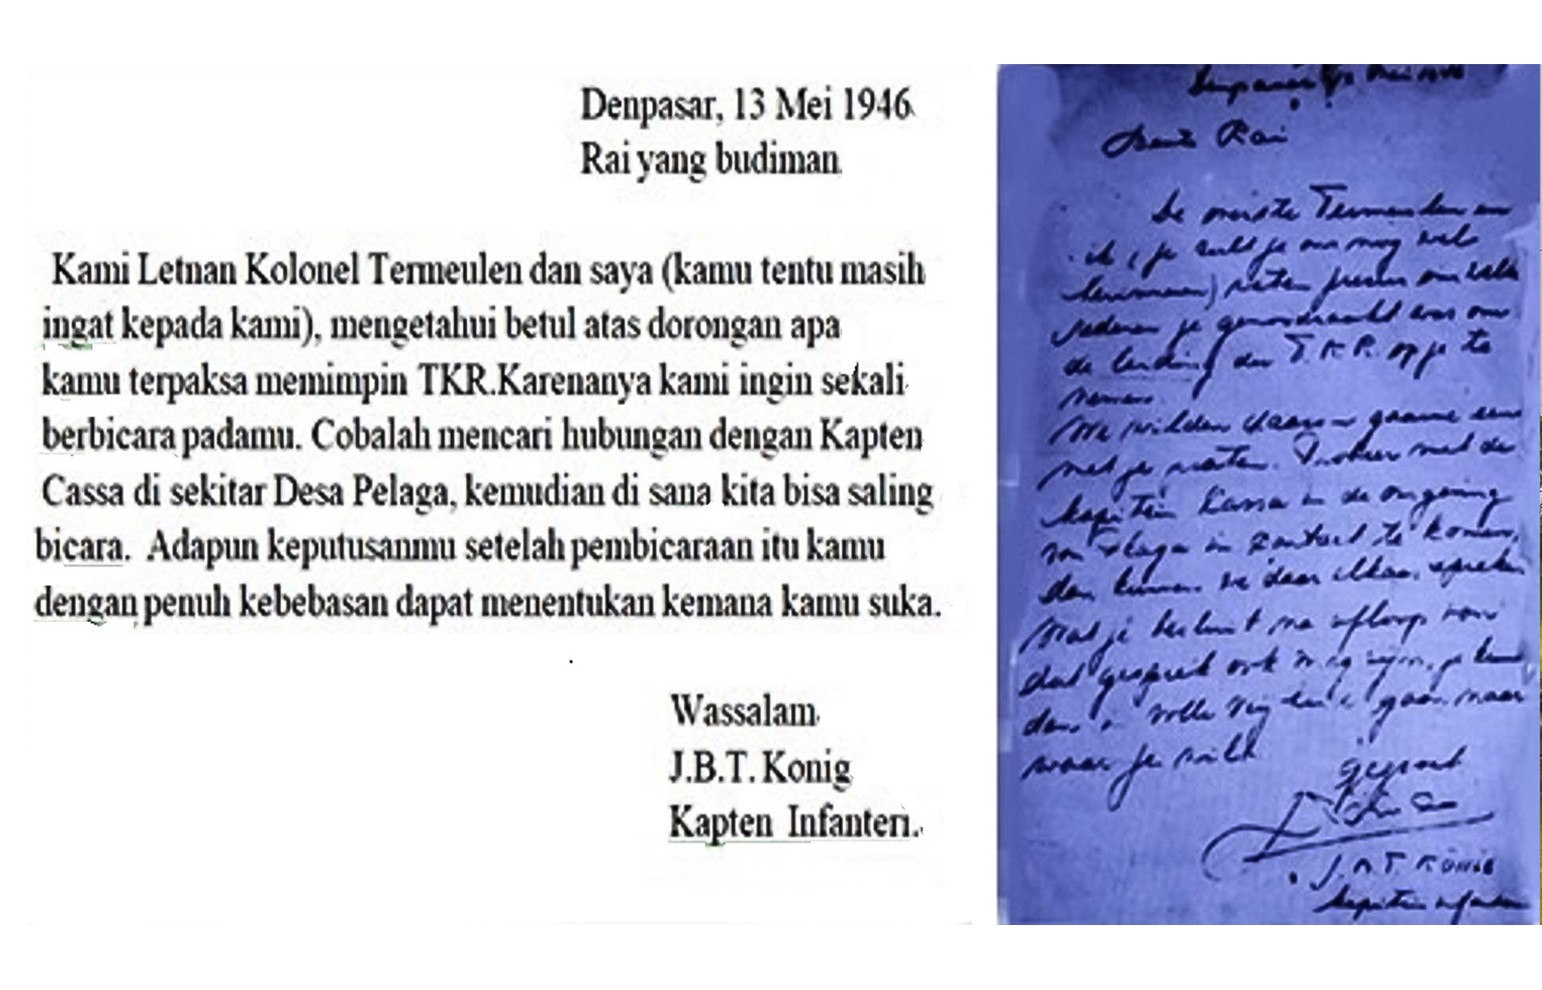 Denpasar, 13 Mei 1946
Rai yang budiman
Kami Letnan Kolonel Termeulen dan saya (kamu tentu masih
ingat kepada kami), mengetahui betul atas dorongan apa
kamu terpaksa memimpin TKR.Karenanya kami ingin sekali
berbicara padamu. Cobalah mencari hubungan dengan Kapten
Cassa di sekitar Desa Pelaga, kemudian di sana kita bisa saling
bicara. Adapun keputusanmu setelah pembicaraan itu kamu
dengan penuh kebebasan dapat menentukan kemana kamu suka.
Wassalam
J.B.T. Konig
Kapten Infanteri.
Denpasar Mei 1946
Rai
De Termeulen en
ik ( je zult je ons nog wel
) weten
je was om
de leiding der T.K.R. op je te
nemen.
We wilden daarom gaarne eens
met je praten. Probeer met de
kapitein Cassa in de omgeving
van Plaga in contact te komen,
dan kunnen we daar elkaar spreken
Wat je besluit na afloop van
dat gesprek ook mag zijn, je kunt
dan in volle gaan naar
waar je wilt
J.B.T. König
kapitein infanterie